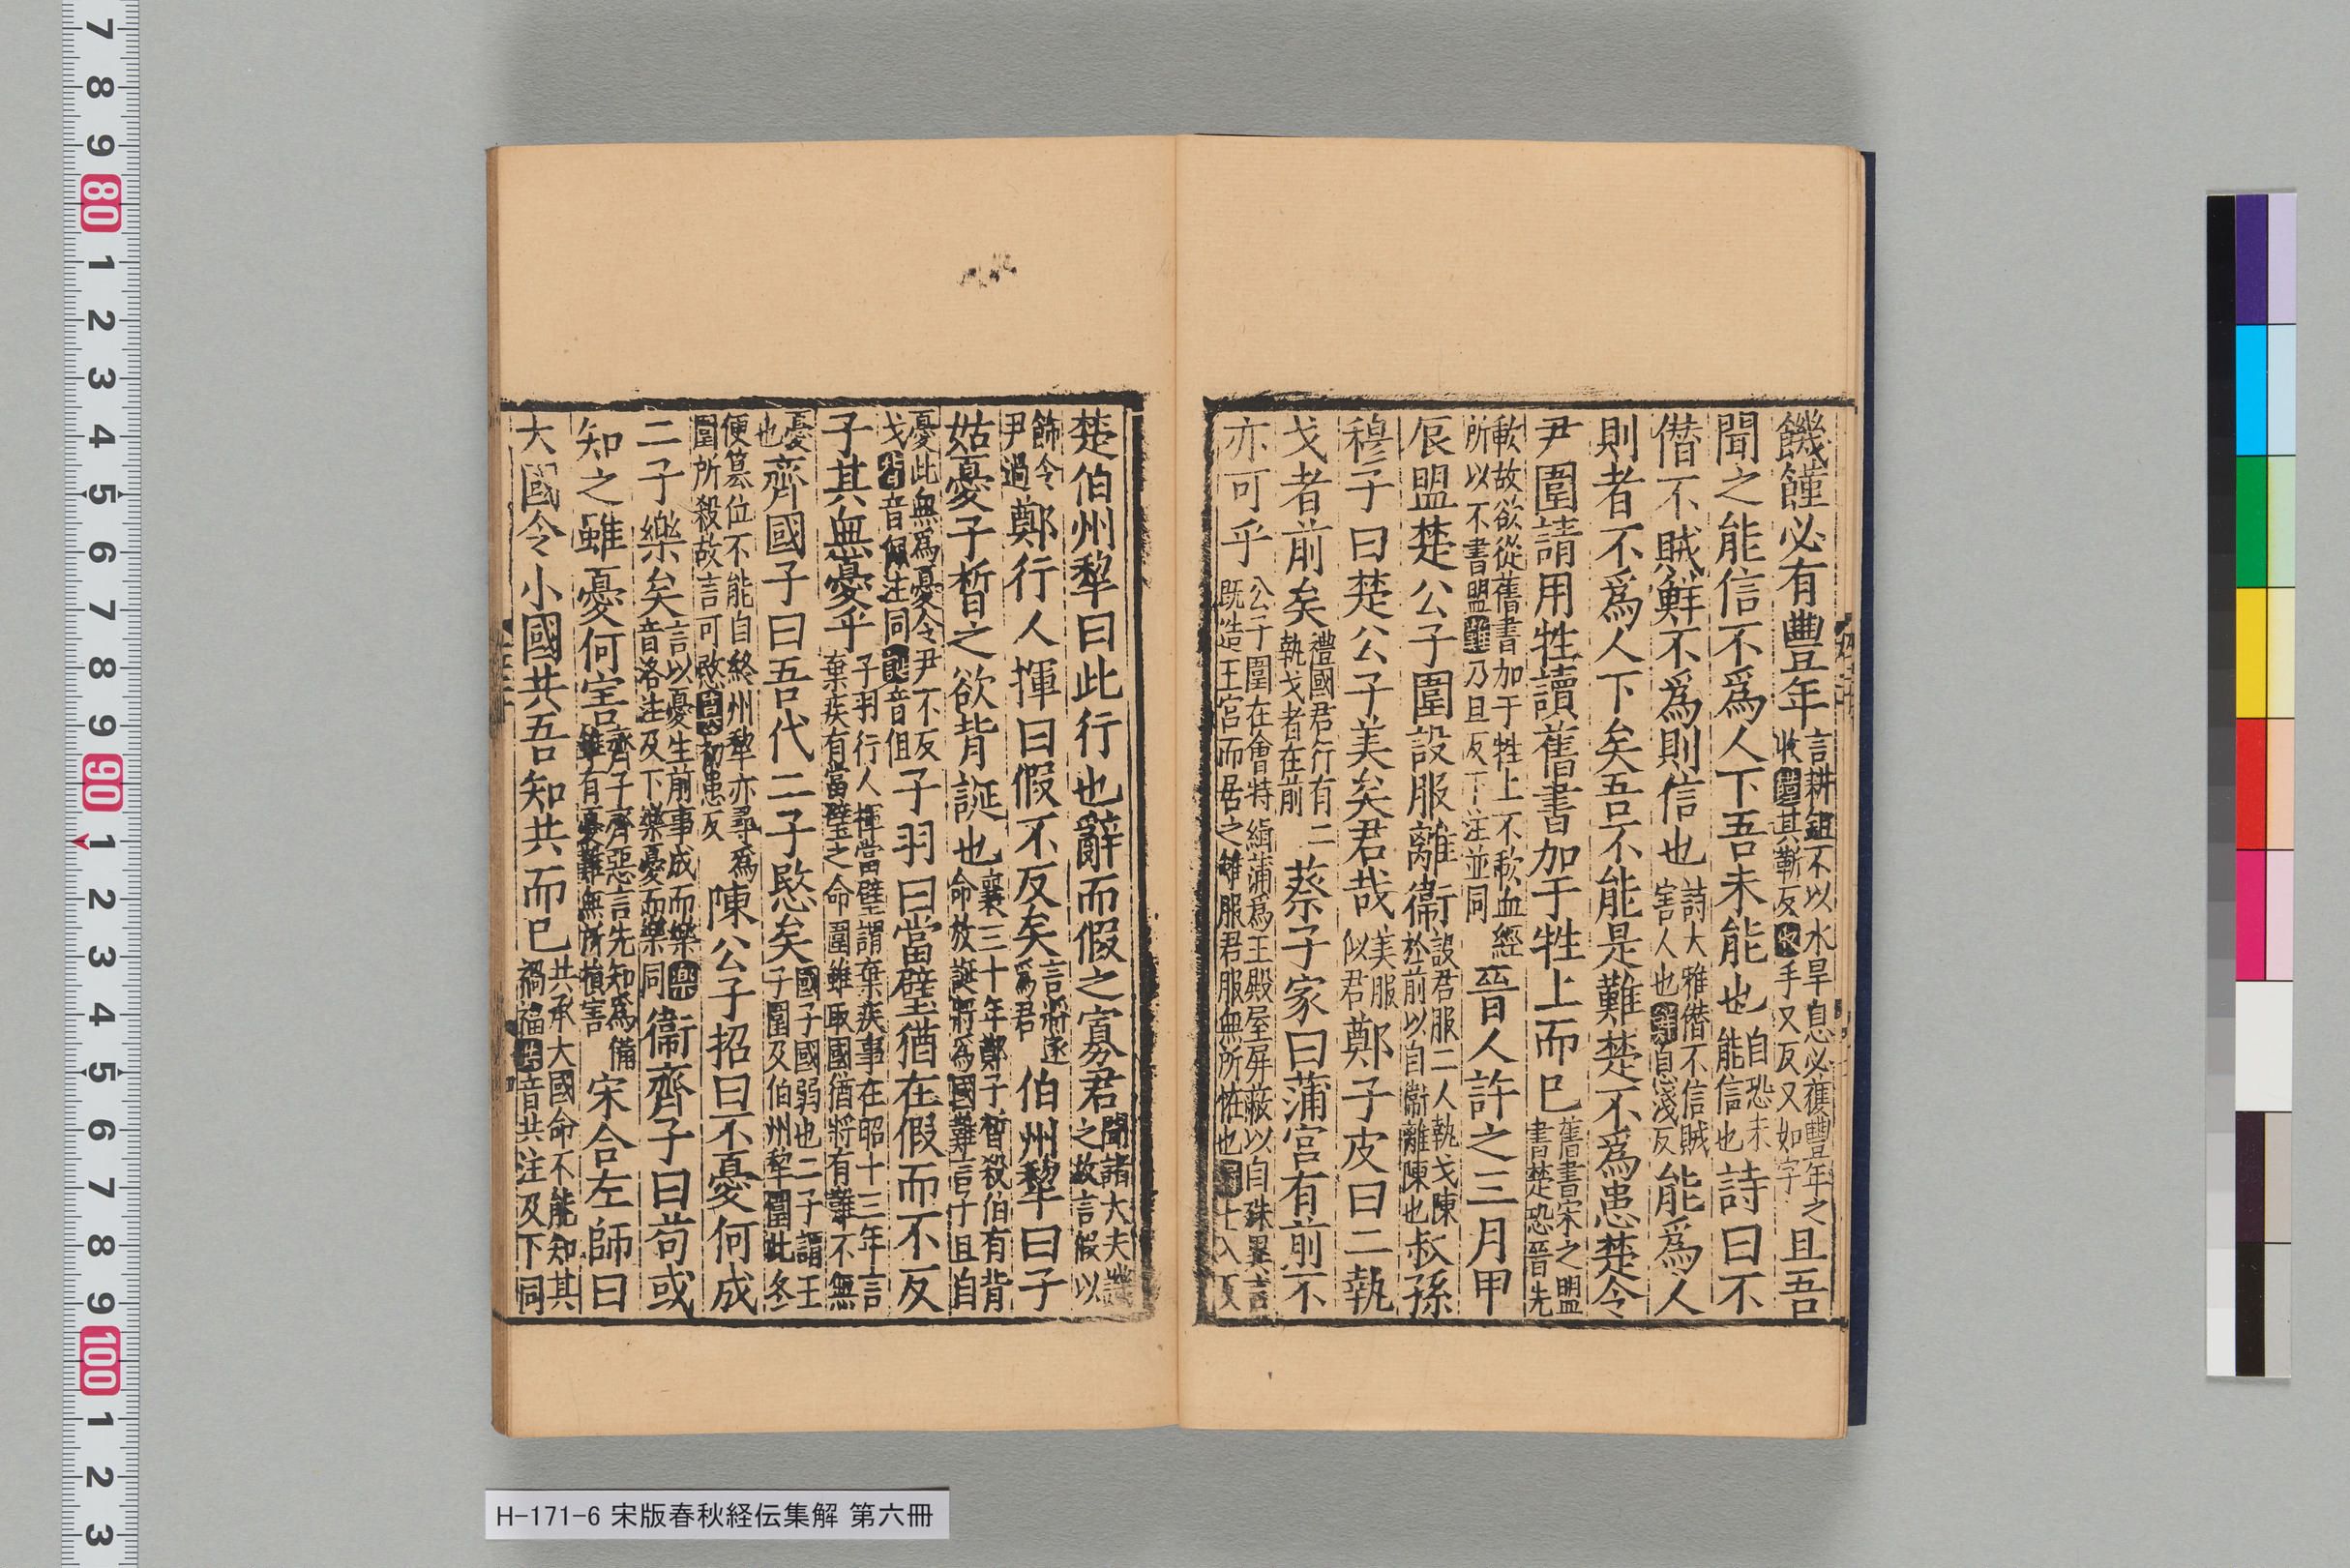 饑饉必有豐年言耕鉏不以水旱息必獲豐年之收饉其靳反收手又反又如字且吾
聞之能信不爲人下吾未能也自恐未能信也詩曰不
僭不賊鮮不爲則信也詩大雅僭不信賊害人也鮮息淺反能爲人
則者不爲人下矣吾不能是難楚不爲患楚令
尹圍請用牲讀舊書加于牲上而已舊書宋之盟書楚恐晉先
歃故欲從舊書加于牲上不歃血經所以不書盟難乃旦反下注並同晉人許之三月甲
辰盟楚公子圍設服離衞設君服二人執戈陳於前以自衞離陳也叔孫
穆子曰楚公子美矣君哉美服似君鄭子皮曰二執
戈者前矣禮國君行有二執戈者在前蔡子家曰蒲宮有前不
亦可乎公子圍在會特緝蒲爲王殿屋屏蔽以自殊異言既造王宮而居之雖服君服無所怪也緝七入反
楚伯州犁曰此行也辭而假之寡君聞諸大夫譏之故言假以
飾令尹過鄭行人揮曰假不反矣言將遂爲君伯州犁曰子
姑憂子晳之欲背誕也襄三十年鄭子晳殺伯有背命放誕將爲國難言子且自
憂此無爲憂令尹不反戈背音佩注同誕音但子羽曰當璧猶在假而不反
子其無憂乎子羽行人揮當璧謂棄疾事在昭十三年言棄疾有當璧之命圍雖取國猶將有難不無
憂也齊國子曰吾代二子愍矣國子國弱也二子謂王子圍及伯州犁圍此冬
便篡位不能自終州犁亦尋爲圍所殺故言可愍篡初患反陳公子招曰不憂何成
二子樂矣言以憂生前事成而樂樂音洛注及下樂憂而樂同衞齊子曰苟或
知之雖憂何害齊子齊惡言先知爲備雖有憂難無所損害宋合左師曰
大國令小國共吾知共而已共承大國命不能知其禍福共音共注及下同
H-171-6 宋版春秋経伝集解 第六冊